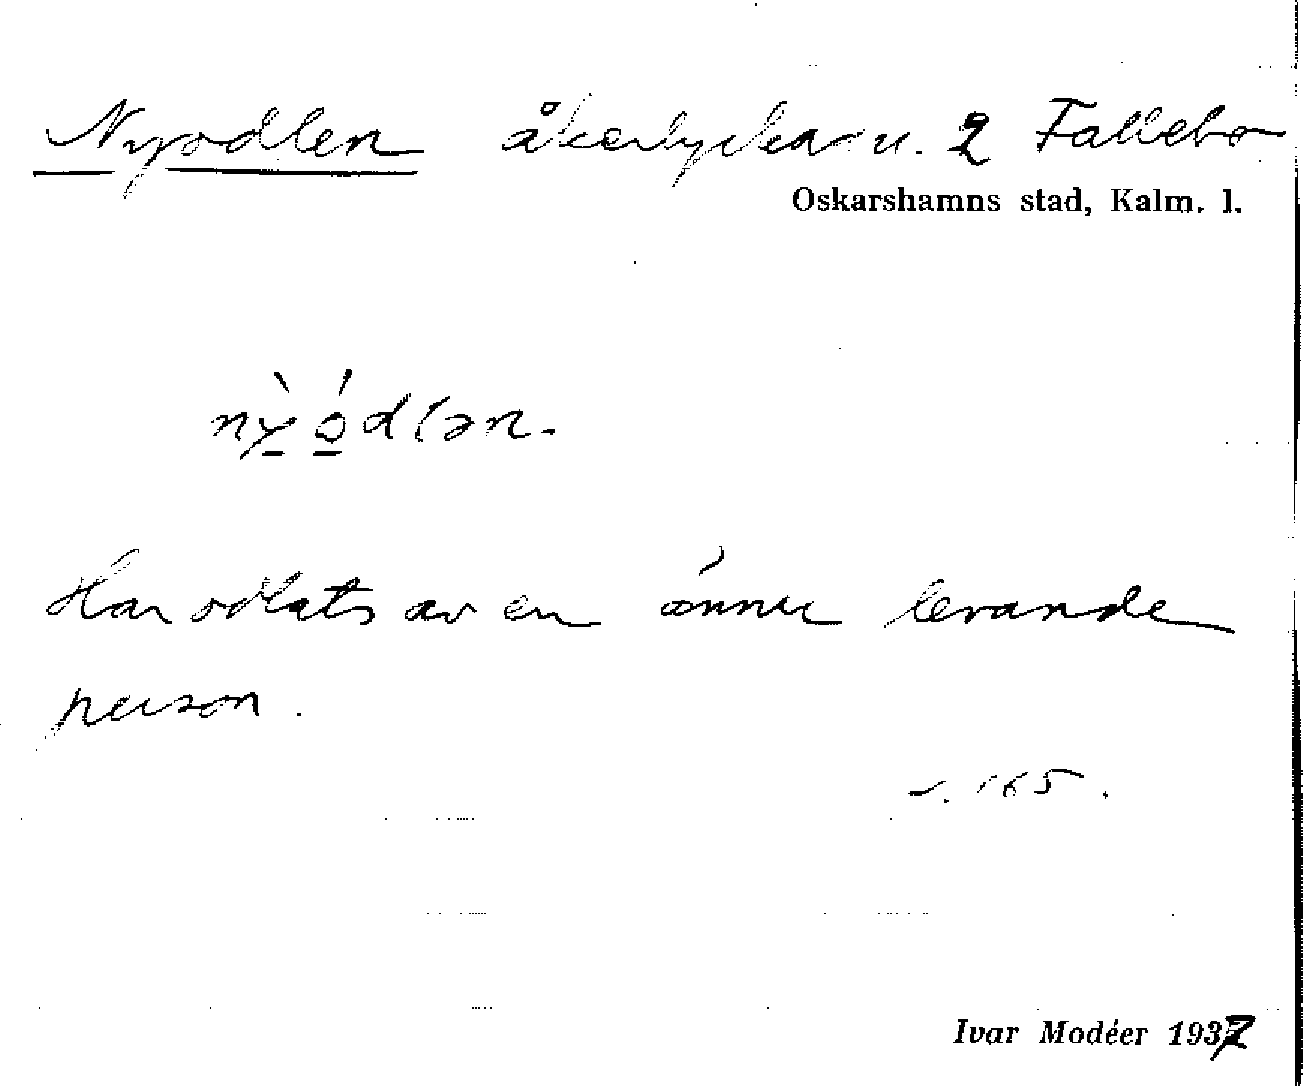 Nyodlen åkerlycka u. 2 Fallebo
Oskarshamns stad, Kalm. l.
nỳ̠ ó̠dlən.
Har odlats av en ännu levande
person.
s. 165.
Ivar Modéer 1937